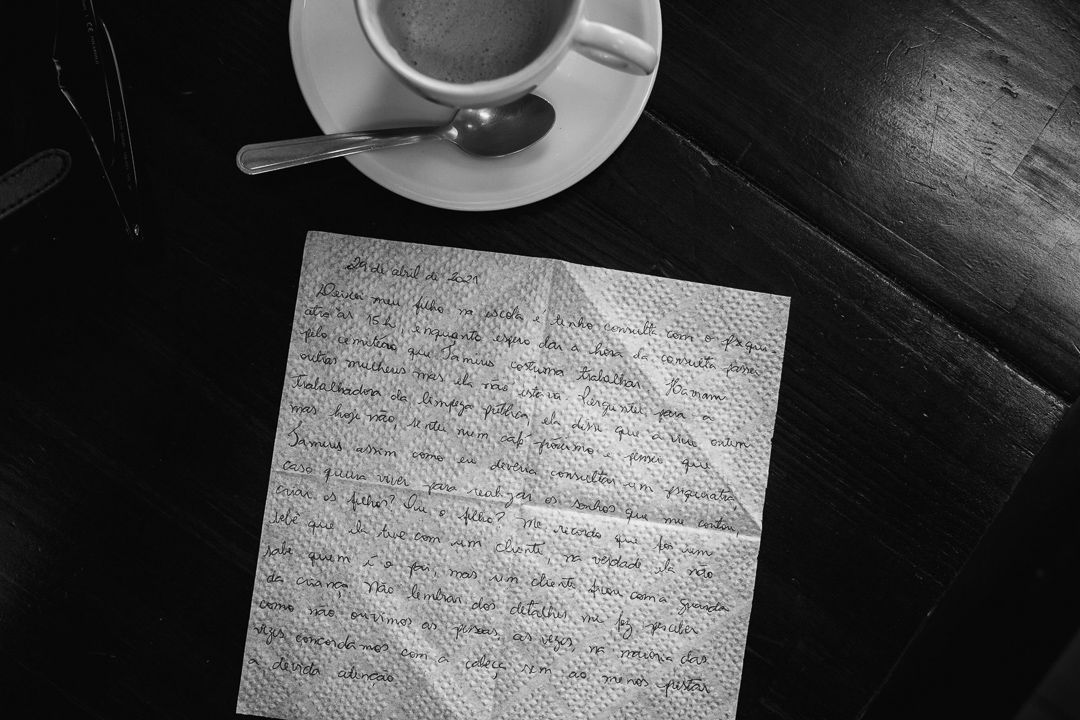 29 de abril de 2021
Deixei meu filho na escola e tenho consulta com o psiqui
atra às 15 h, enquanto espero dar a hora da consulta passei
pelo cemitério que Tameris costuma trabalhar. Haviam
outras mulheres mas ela não estava. Perguntei para a
trabalhadora da limpeza pública, ela disse que a viu ontem
mas hoje não, sentei num café próximo e pensei que
Tameris assim como eu deveria consultar um psiquiatra,
caso queira viver para realizar os sonhos que me contou,
criar os filhos? Ou o filho? Me recordo que foi um
bebê que ela teve com um cliente, na verdade ela não
sabe quem é o pai, mas um cliente ficou com a guarda
da criança. Não lembrar dos detalhes me fez perceber
como não ouvimos as pessoas, as vezes, na maioria das
vezes concordamos com a cabeça sem ao menos prestar
a devida atenção